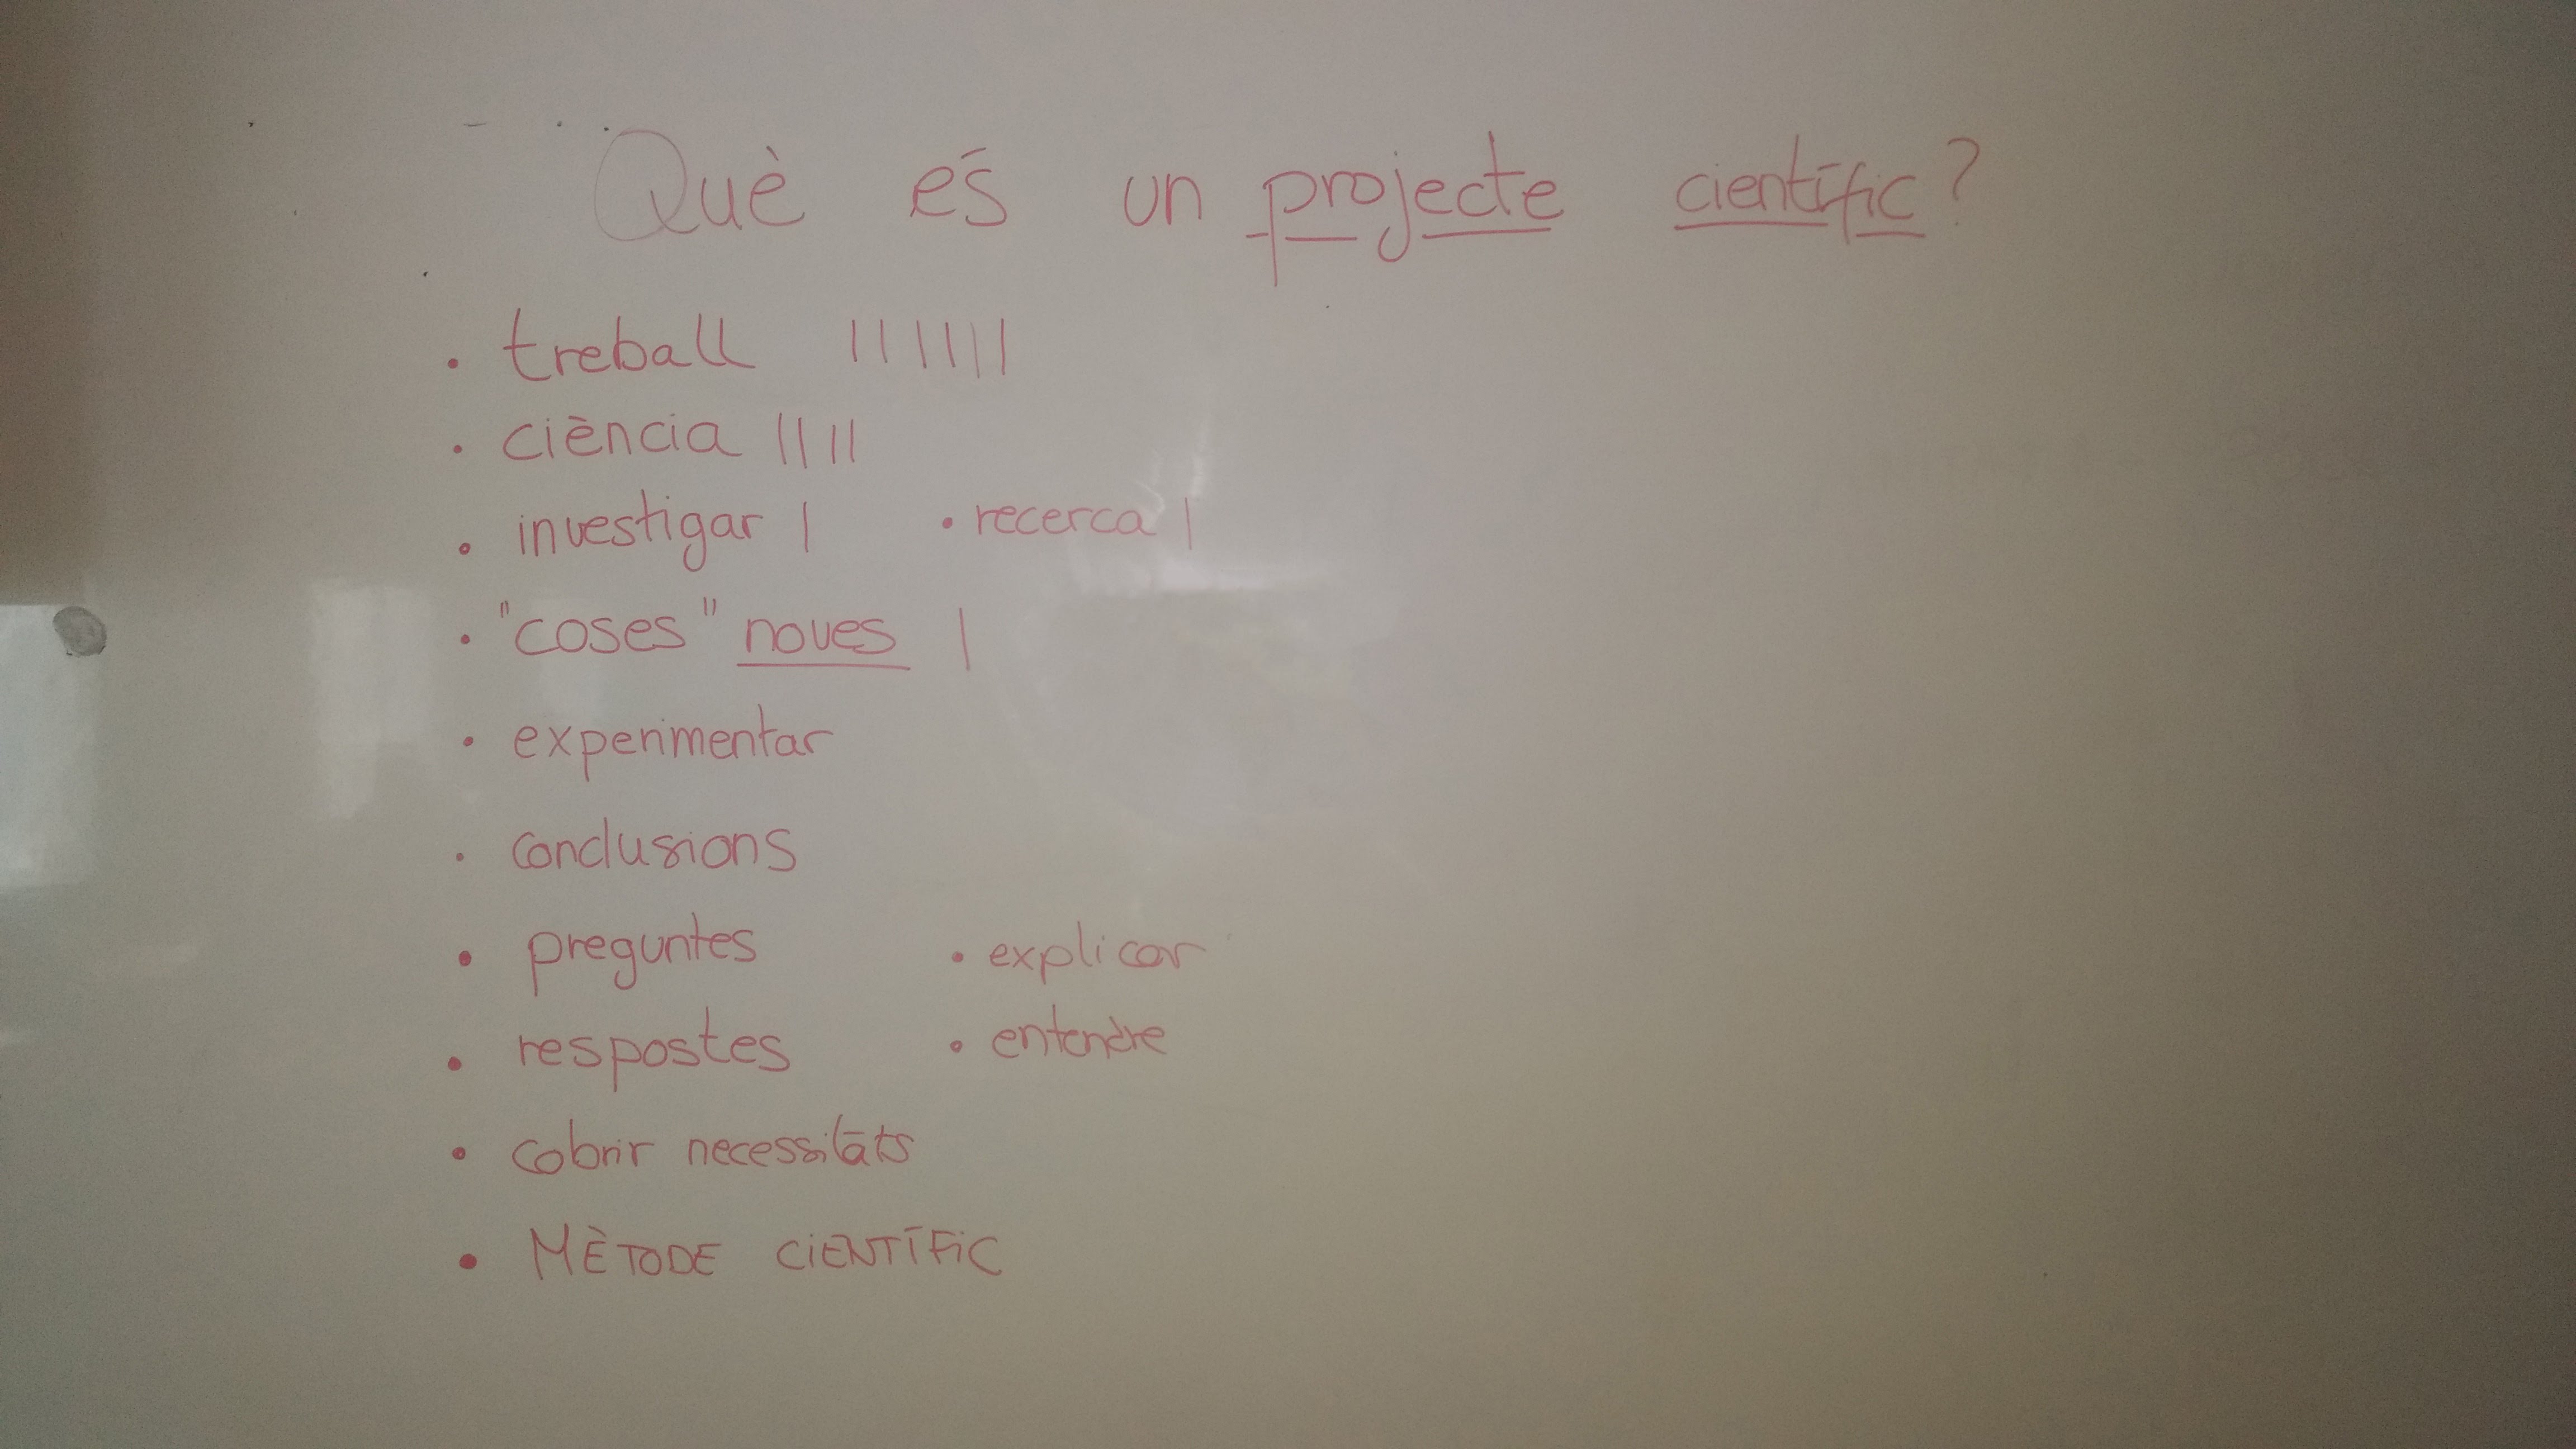 Què és un projecte científic?
• treball |||||||
• ciència ||||
• investigar | • recerca |
• "coses" noves |
• experimentar
• conclusions
• preguntes • explicar
• respostes • entendre
• cobrir necessitats
• MÈTODE CIENTÍFIC